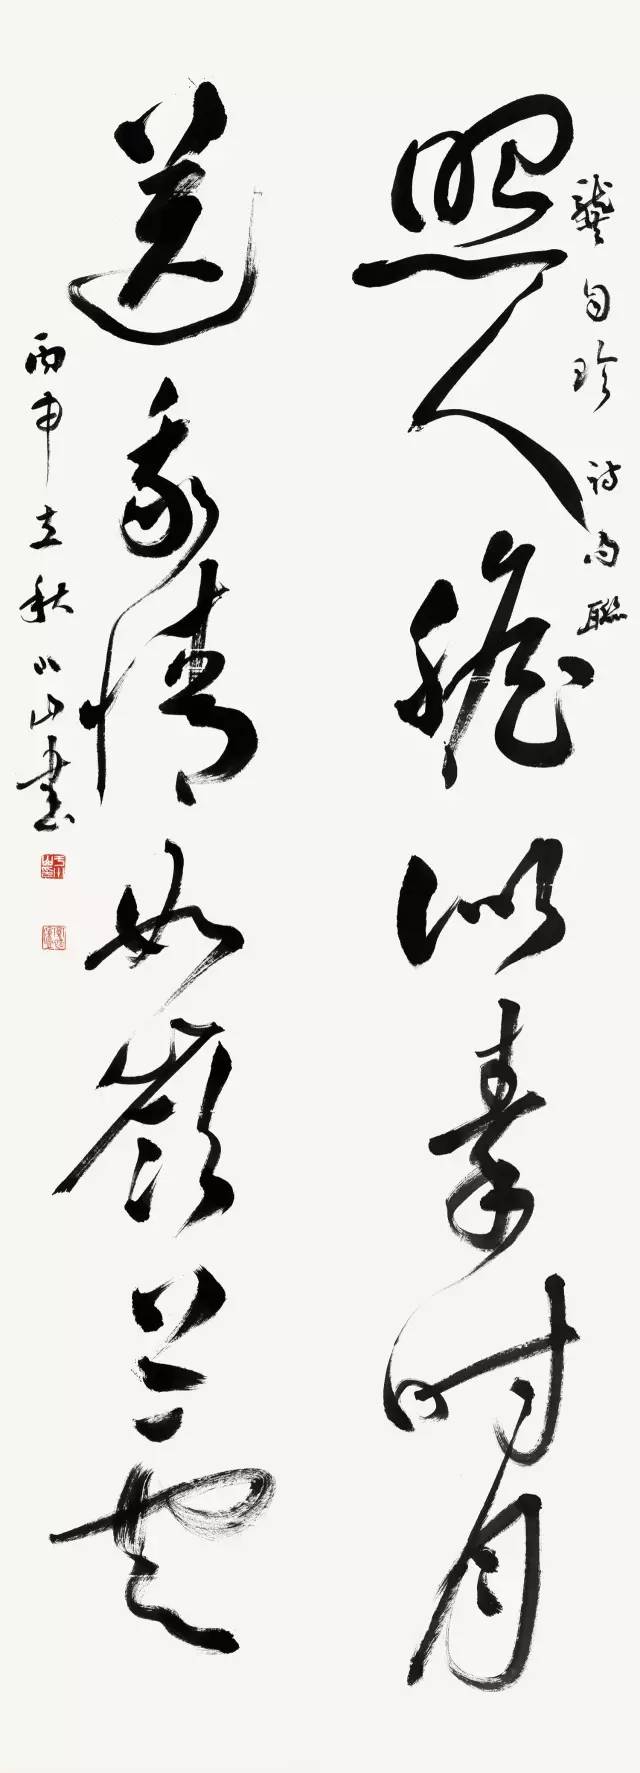 龔自珍詩句聯
照人膽似秦時月
送我情如嶺上雲
丙申立秋小山書